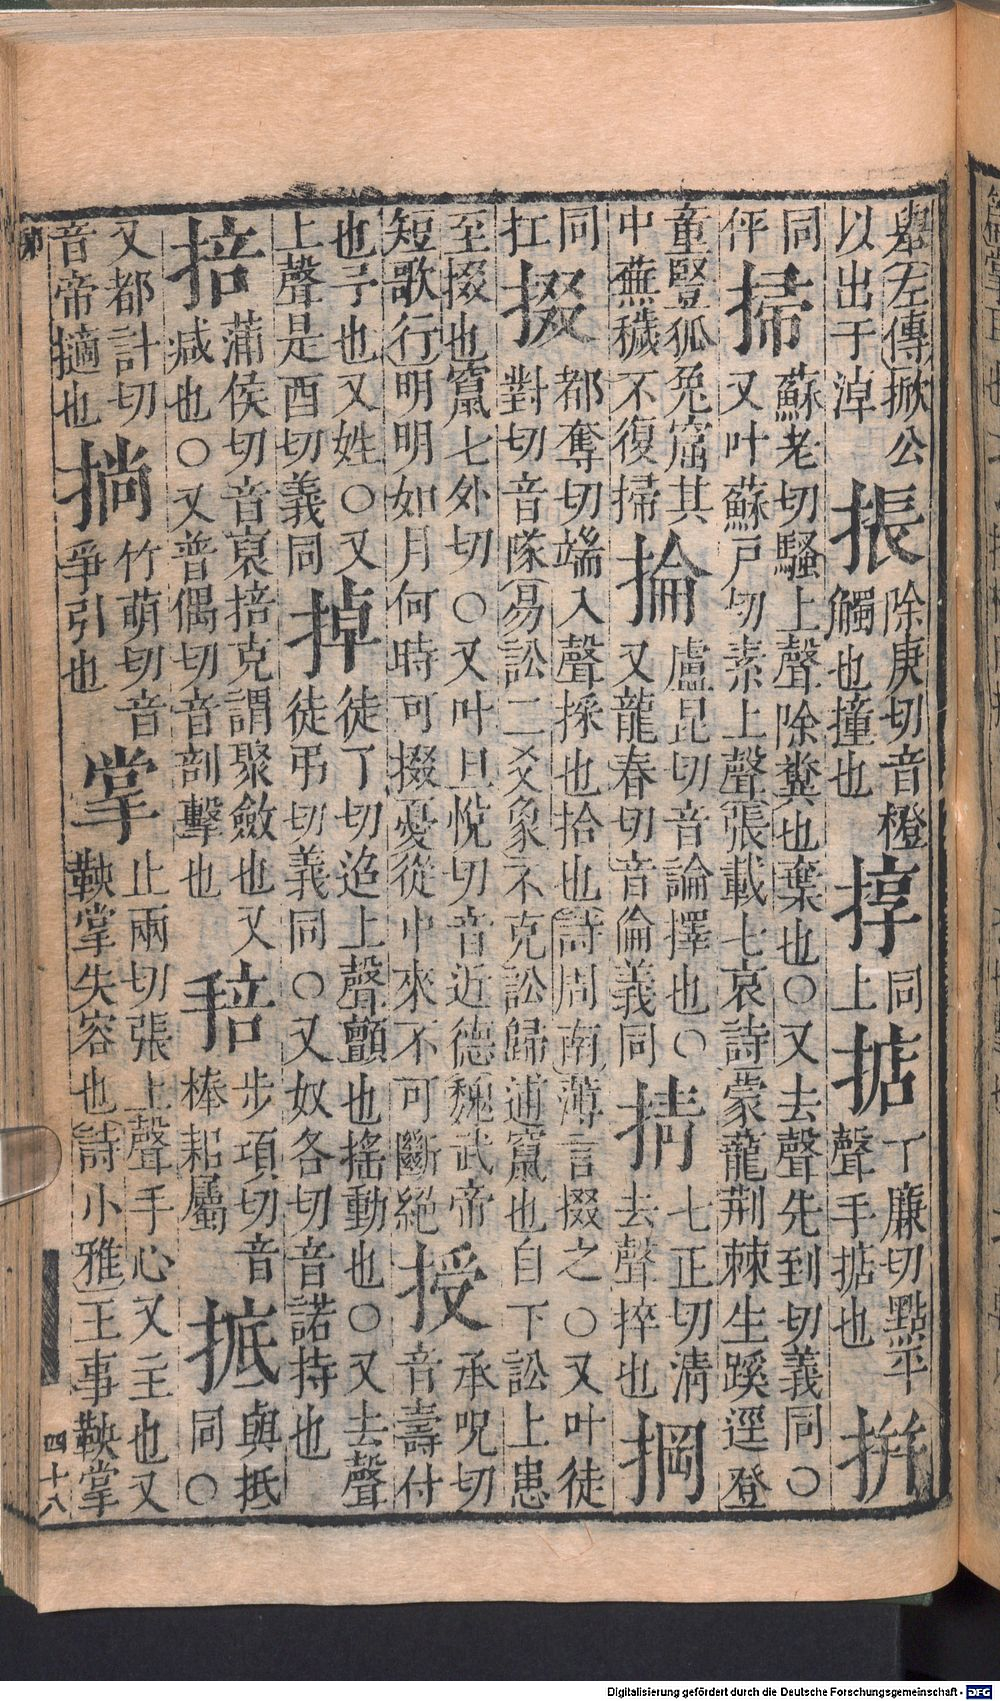 舉左傳掀公以出于淖掁除庚切音橙觸也撞也揨同上掂丁廉切點平聲手掂也拼
同伻掃蘇老切騷上聲除糞也棄也○又去聲先到切義同○又叶蘇戸切素上聲張載七哀詩蒙蘢荆棘生蹊逕登
童豎狐兔窟其中蕪穢不復掃掄盧昆切音論擇也○又龍春切音倫義同掅七正切淸去聲捽也掆
同扛掇都奪切端入聲採也拾也詩周南薄言掇之○又叶徒對切音隊易訟二爻象不克訟歸逋竄也自下訟上患
至掇也竄七外切○又叶旦悅切音近德魏武帝短歌行明明如月何時可掇憂從中來不可斷絕授承呪切音壽付
也予也又姓○又上聲是酉切義同掉徒了切迢上聲顫也搖動也○又去聲徒弔切義同○又奴各切音諾持也
掊蒲侯切音裒掊克謂聚斂也又減也○又普偶切音剖擊也步項切音棒耜屬掋與抵同○
又都計切音帝擿也竹萌切音爭引也掌止兩切張上聲手心又主也又鞅掌失容也詩小雅王事鞅掌
四十八
Digitalisierung gefördert durch die Deutsche Forschungsgemeinschaft - DFG